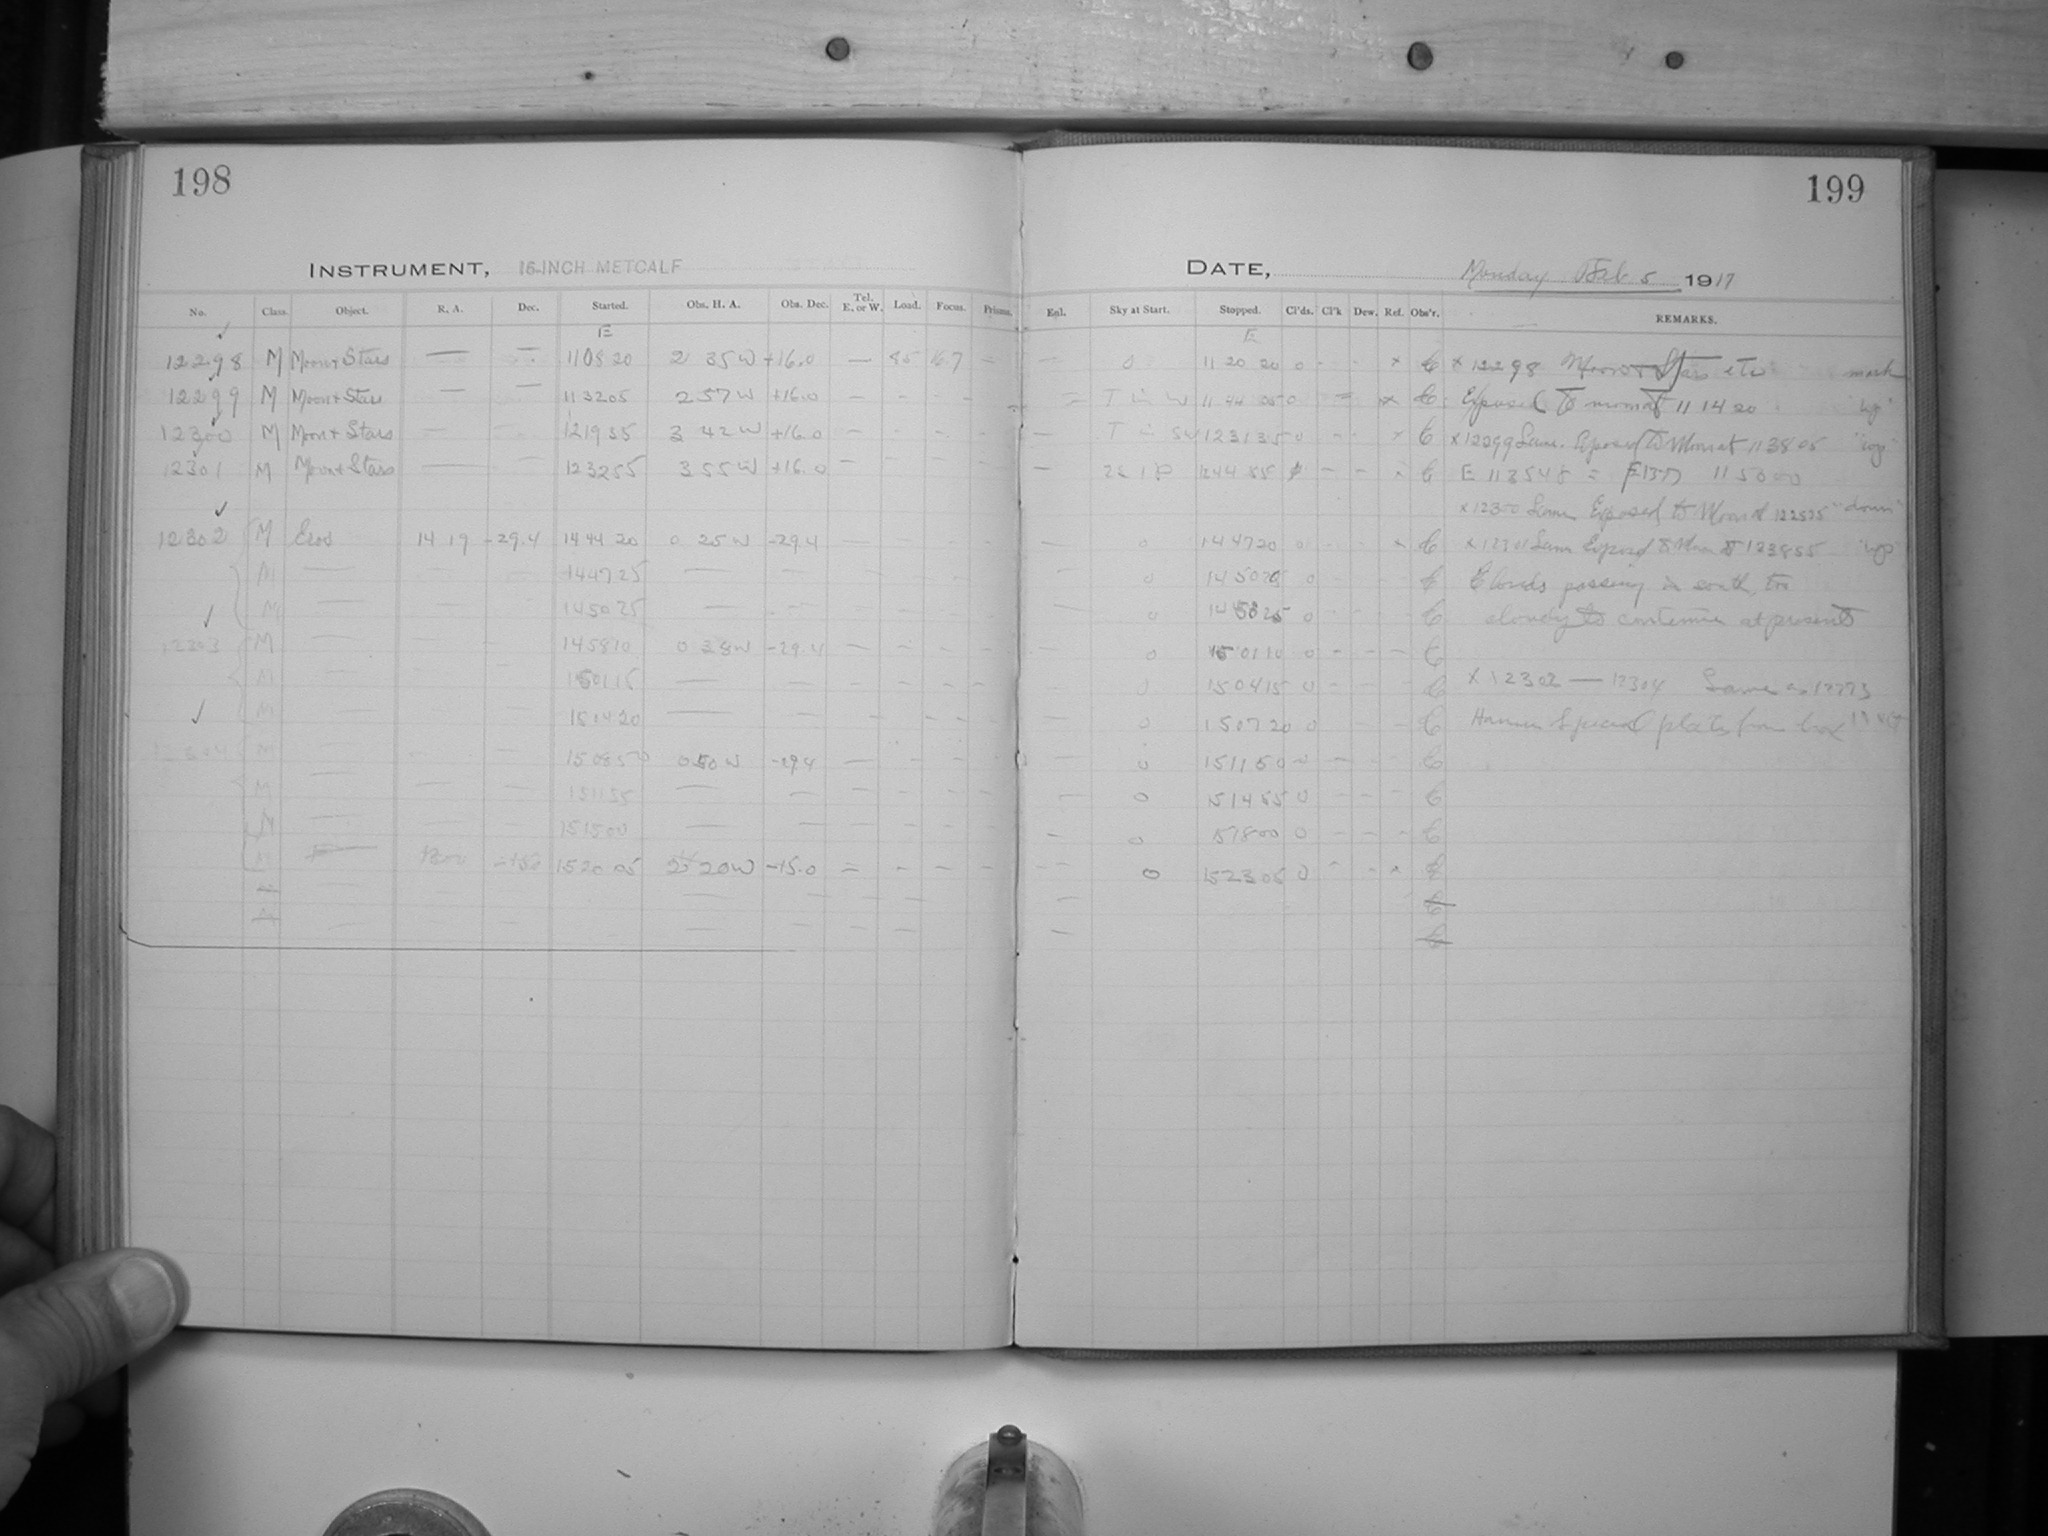 198
199
INSTRUMENT, 16-INCH METCALF
DATE, Monday Feb 5 1917
No. Class. Object. R. A. Dec. Started. Obs. H. A. Obs. Dec. Tel. E. or W. Load. Focus. Prisms. Enl. Sky at Start. Stopped. Cl'ds. Cl'k Dew. Ref. Obs'r. REMARKS.
E E
12298 M Moon & Stars — — 110820 2 35 W +16.0 — 85 16.7 — — 0 11 20 20 0 - - x C x 12298 Moon & Stars etc mark
12299 M Moon + Stars — — 113205 2 57 W +16.0 — - - - T in W 11 44 05 0 x C Exposed to moon at 11 14 20 "up"
12300 M Moon + Stars 121935 3 42 W +16.0 — - - - — T in SW 123135 0 - - x C x 12299 Same. Exposed to Moon at 113805 "up"
12301 M Moon + Stars — 123255 3 55 W +16.0 — - - - — 1244 55 - - x C E 113548 = 115000
x 12300 Same Exposed to Moon at 122535 "down"
12302 M Eros 14 19 -29.4 144420 0 25 W -29.4 — 0 144720 0 - - x C x 12301 Same Exposed to Moon at 123855 "up"
M — — 144725 — 0 0 C Clouds passing in south, too
M — — 145025 — 0 0 C cloudy to continue at present
12303 M — 145810 0 38 W -29.4 — 0 150110 0 - - - C
M — 150115 — 0 150415 0 C x 12302 — 12304 Same as
M — 150420 — 0 150720 0 C Hammer Special plates from box
12304 M — 150850 0 50 W -29.4 — 0 151150 0 - - - C
M — — 151155 — 0 151455 0 - - - C
M — 151500 — 0 151800 0 - - - C
M 152005 20 W -15.0 0 152305 0 x C
C
C